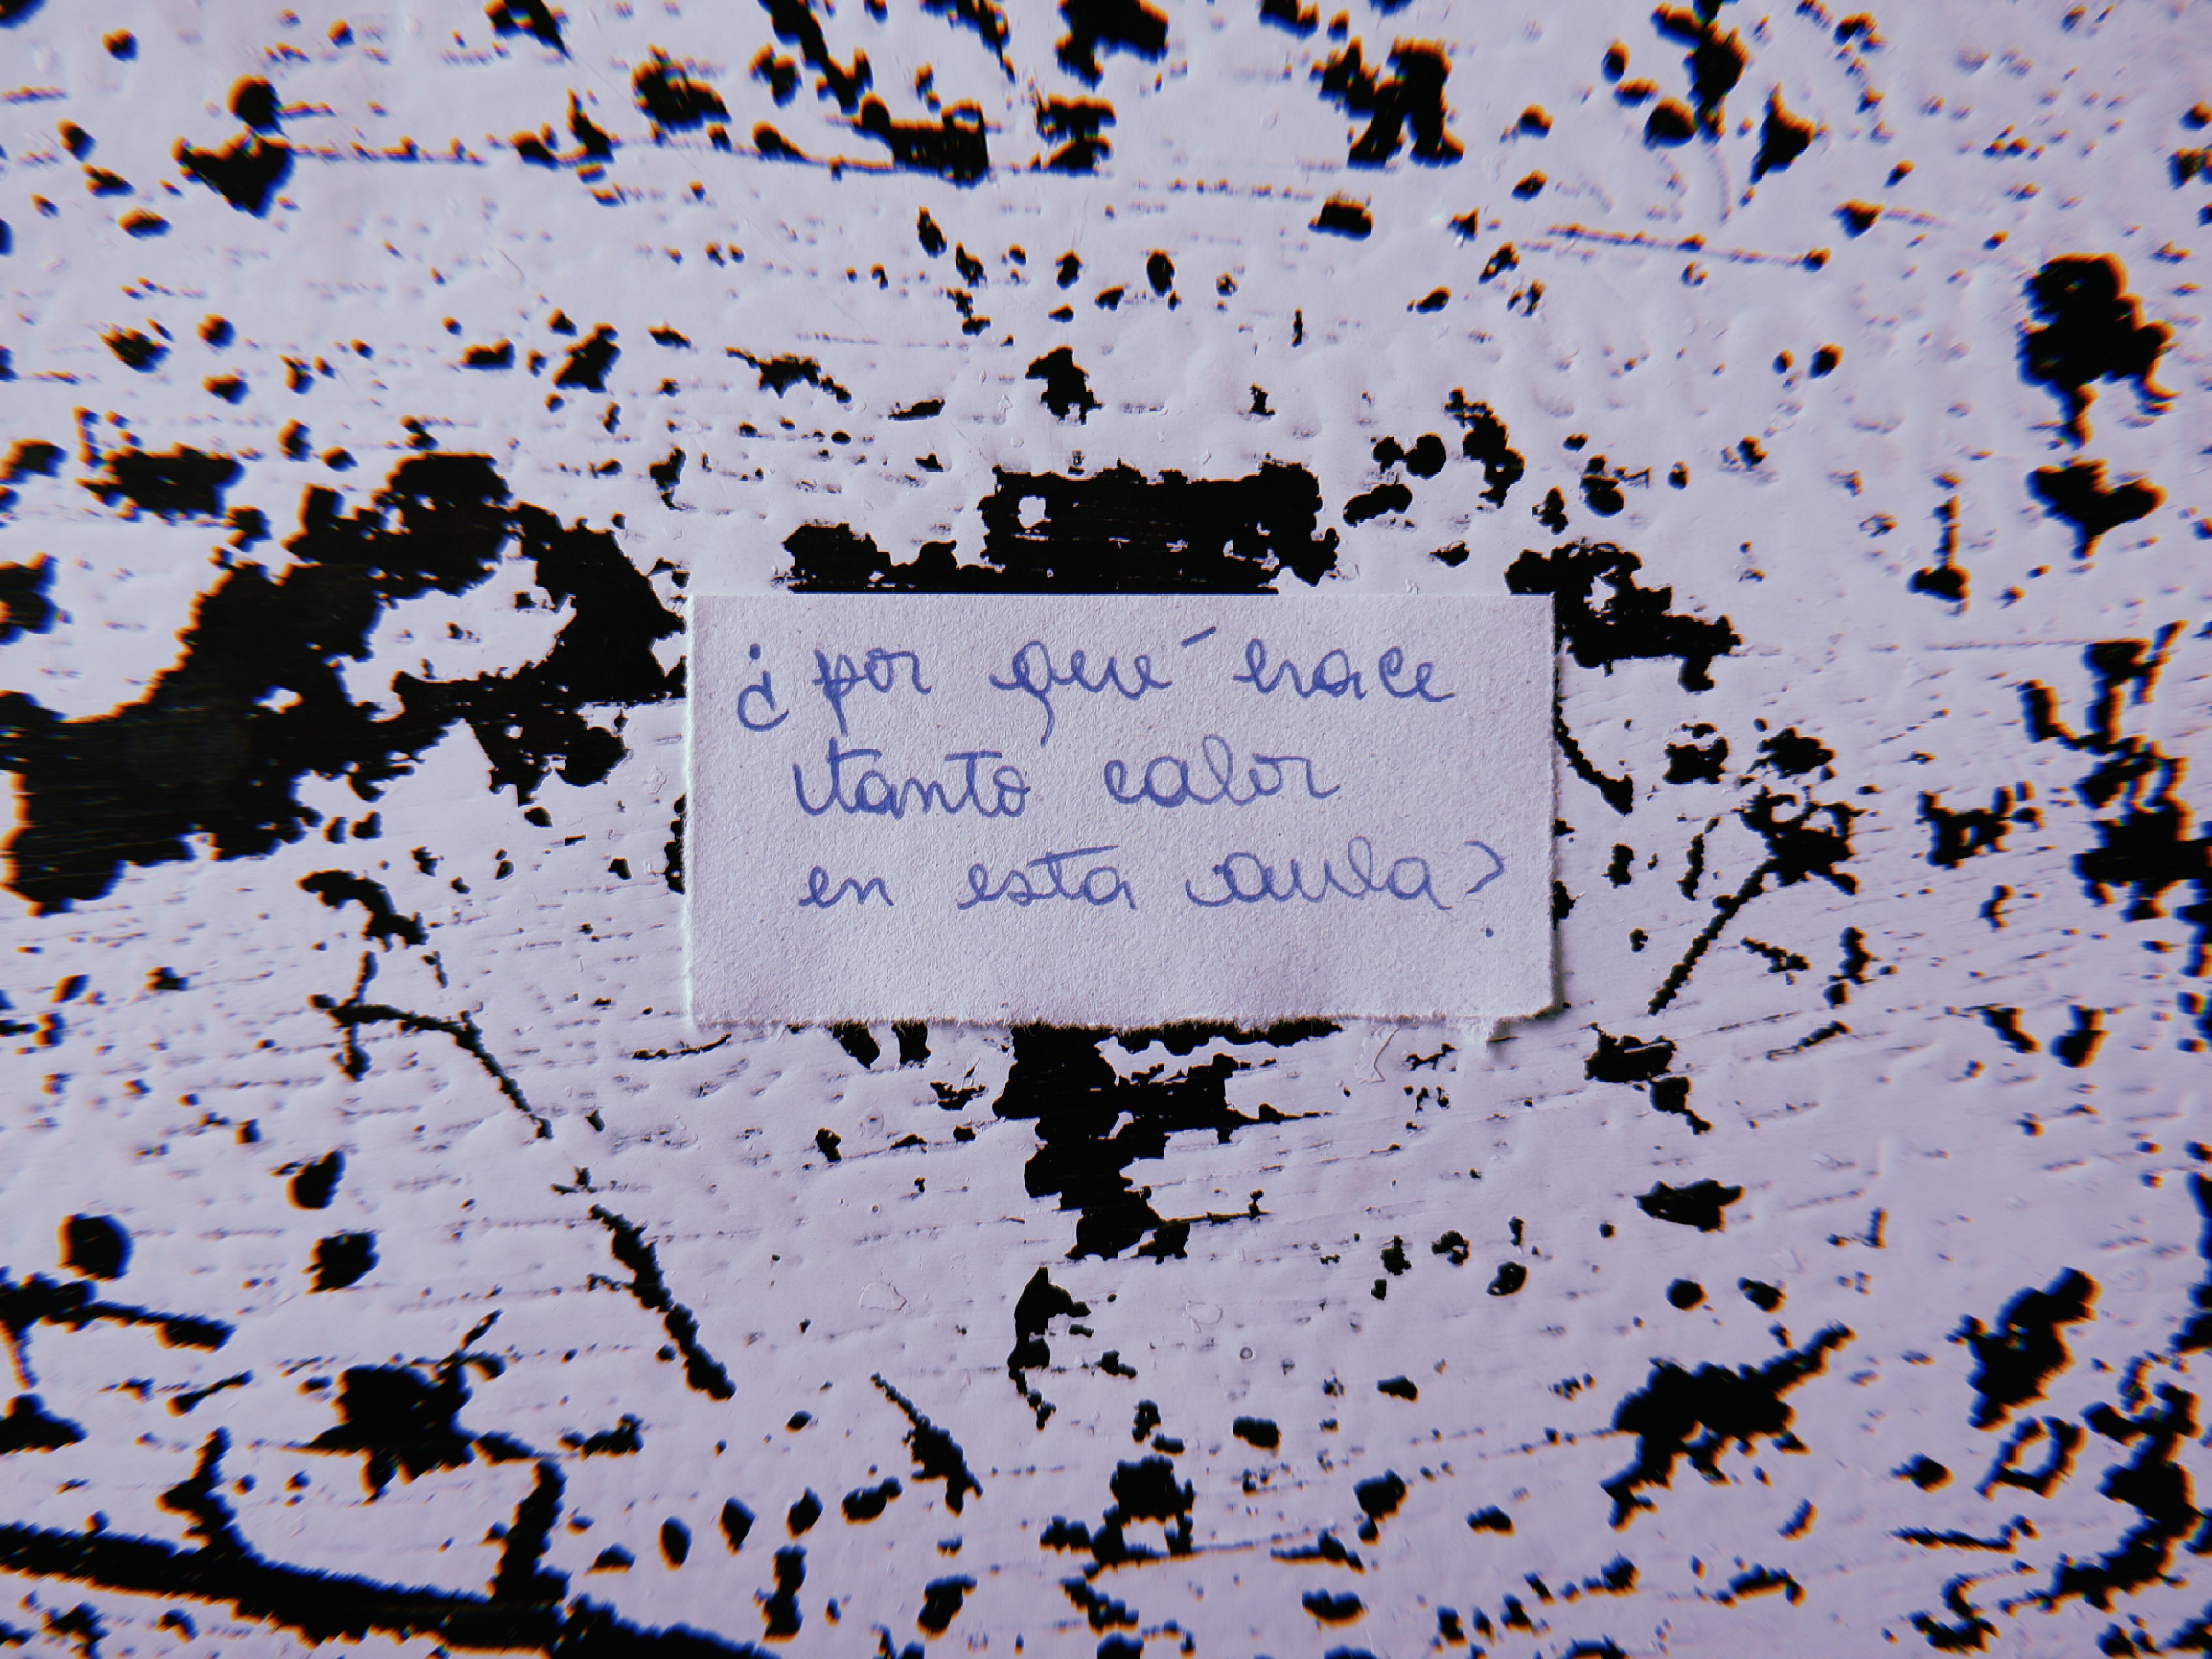 ¿por qué hace
tanto calor
en esta aula?